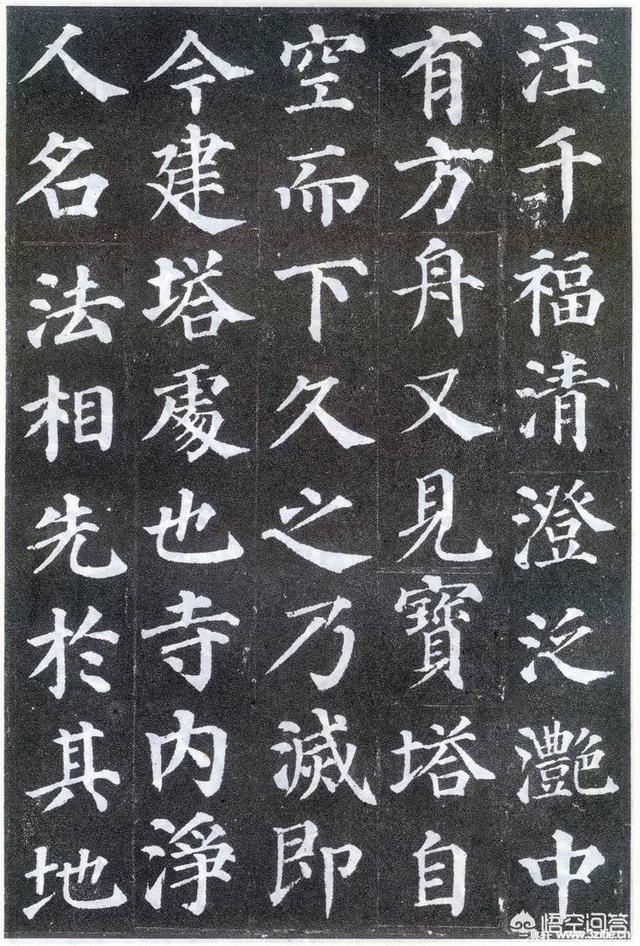 注千福清澄泛灔中
有方舟又見寶塔自
空而下久之乃滅即
今建塔處也寺内淨
人名法相先於其地
悟空问答
www.3zitie.cn